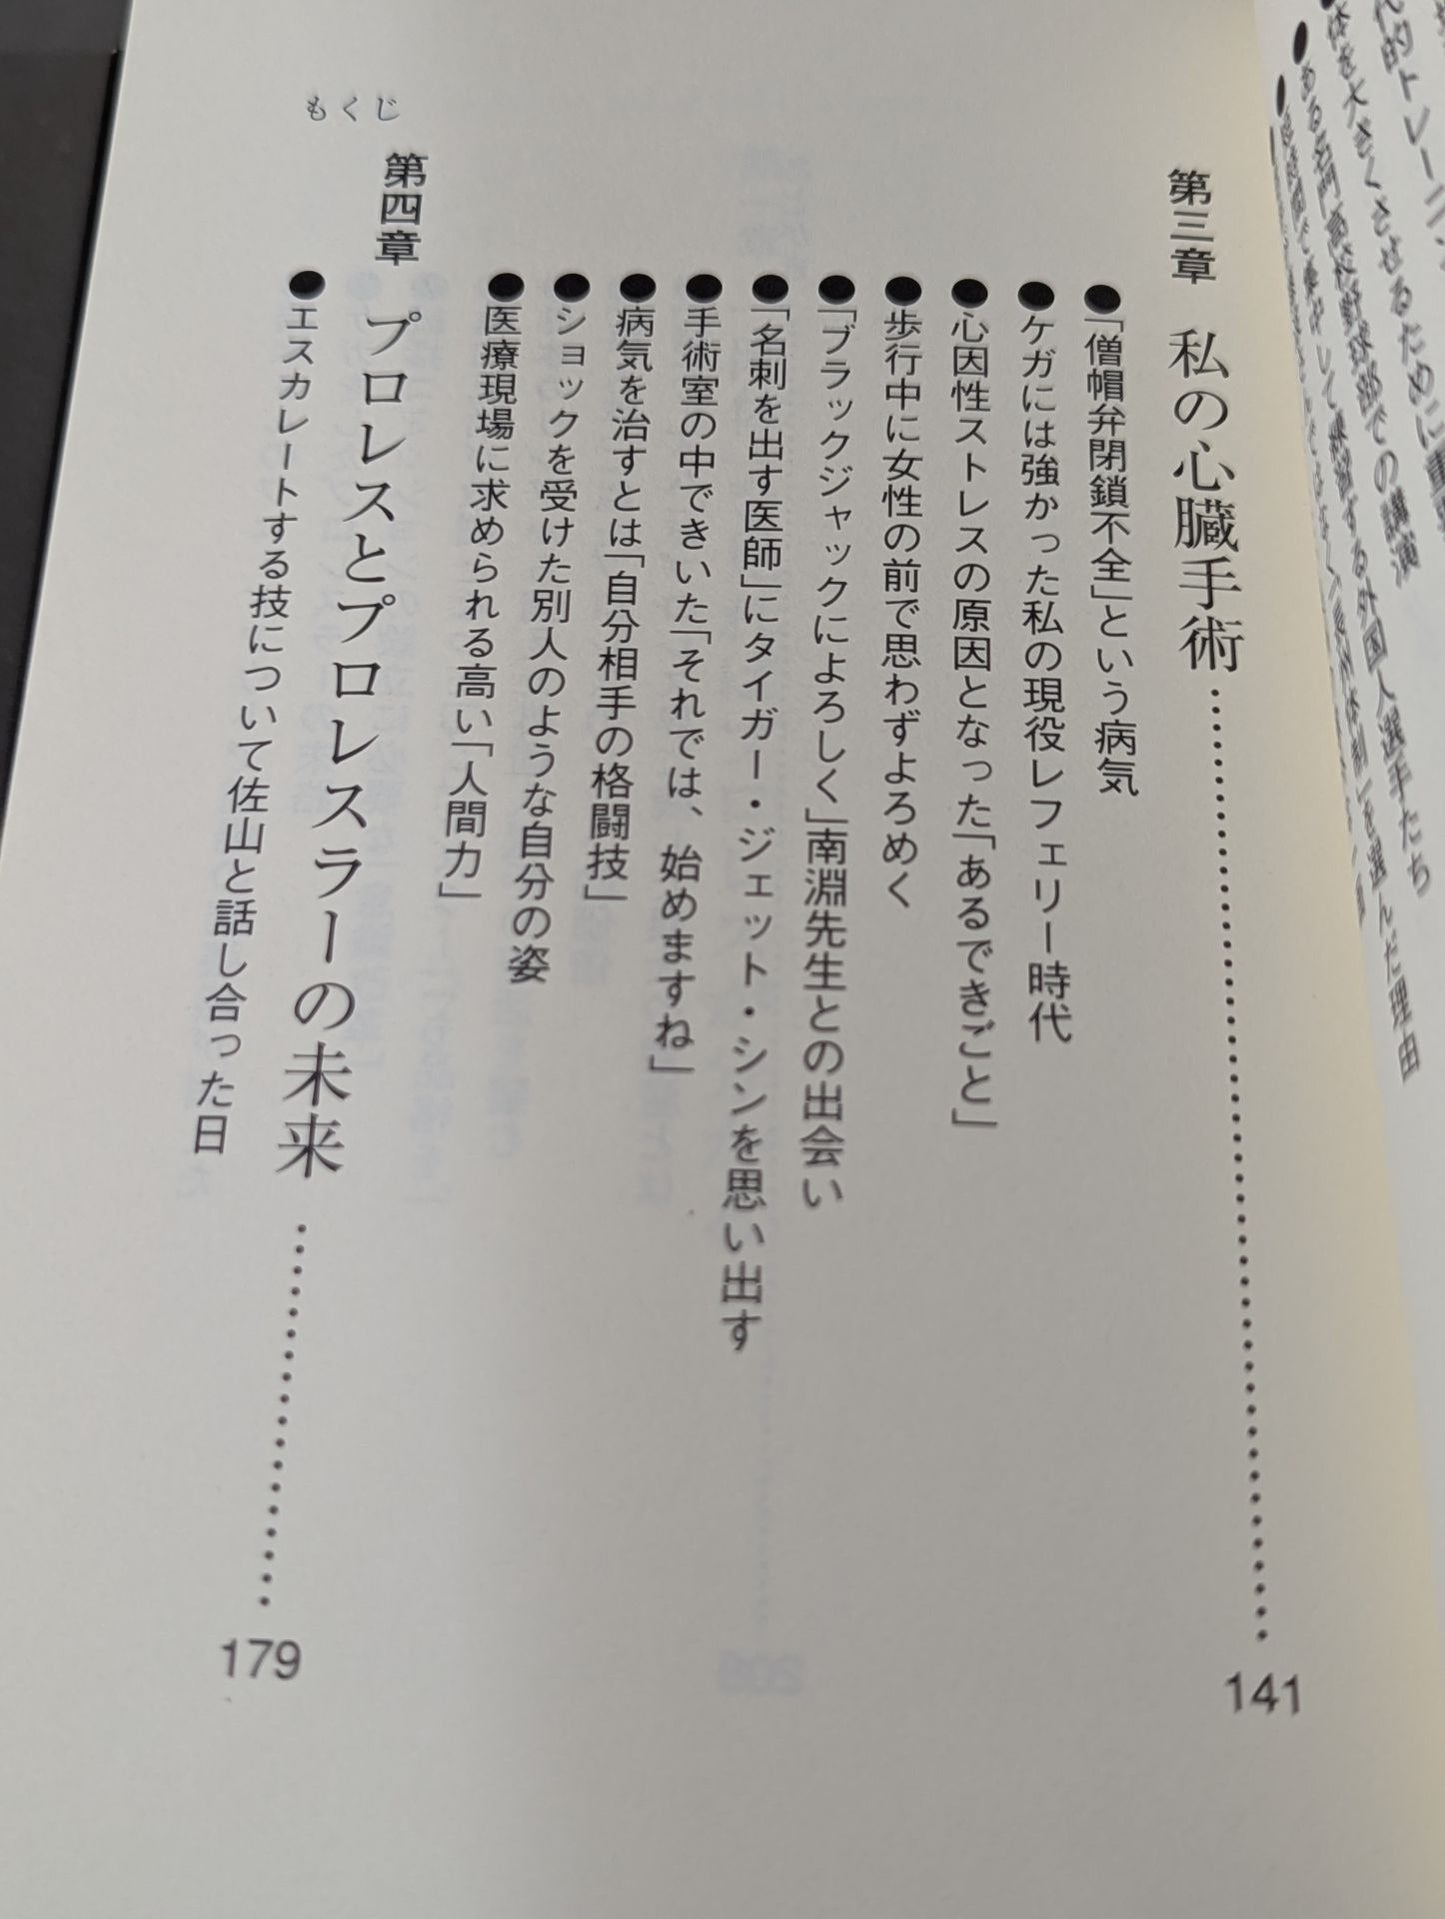 もくじ
第三章 私の心臓手術……………………141
●「僧帽弁閉鎖不全」という病気
●ケガには強かった私の現役レフェリー時代
●心因性ストレスの原因となった「あるできごと」
●歩行中に女性の前で思わずよろめく
●「ブラックジャックによろしく」南淵先生との出会い
●「名刺を出す医師」にタイガー・ジェット・シンを思い出す
●手術室の中できいた「それでは、始めますね」
●病気を治すとは「自分相手の格闘技」
●ショックを受けた別人のような自分の姿
●医療現場に求められる高い「人間力」
第四章 プロレスとプロレスラーの未来……………179
●エスカレートする技について佐山と話し合った日